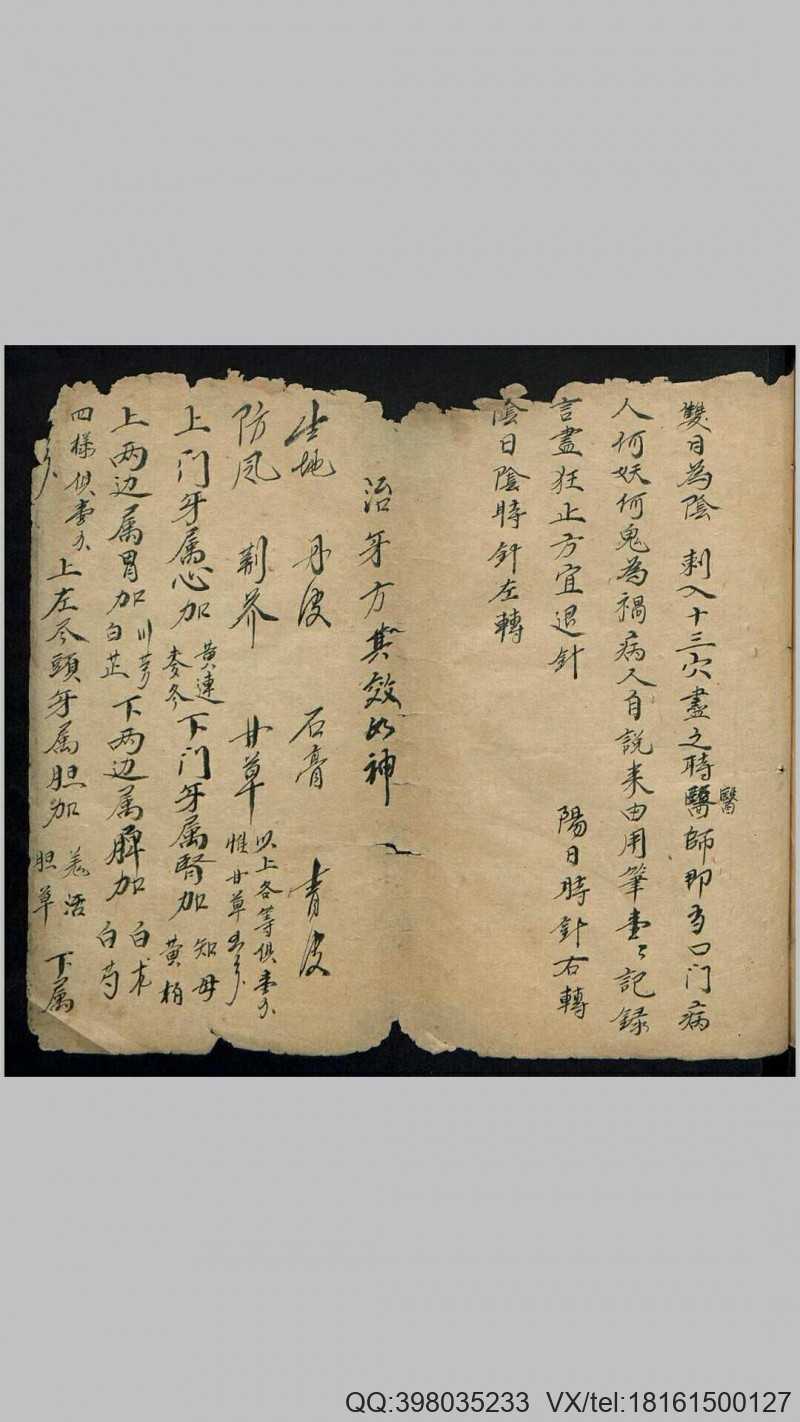 雙日為陰 刺入十三穴盡之時醫師即為口门病
醫
人何妖何鬼為禍病人自說来由用筆壹々記録
言盡狂止方宜退針 陽日時針右轉
陰日陰時針左轉
治牙方其效如神
生地 丹皮 石膏 青皮
防风 荆芥 甘草 以上各等俱壹分
惟甘草
上门牙属心加 黄連
麥冬 下门牙属腎加 知母
黄柏
上两边属胃加 川芎
白芷 下两边属脾加 白术
白芍
四様俱壹分 上左尽頭牙属胆加 羌活
胆草 下属
QQ:398035233 VX/tel:18161500127